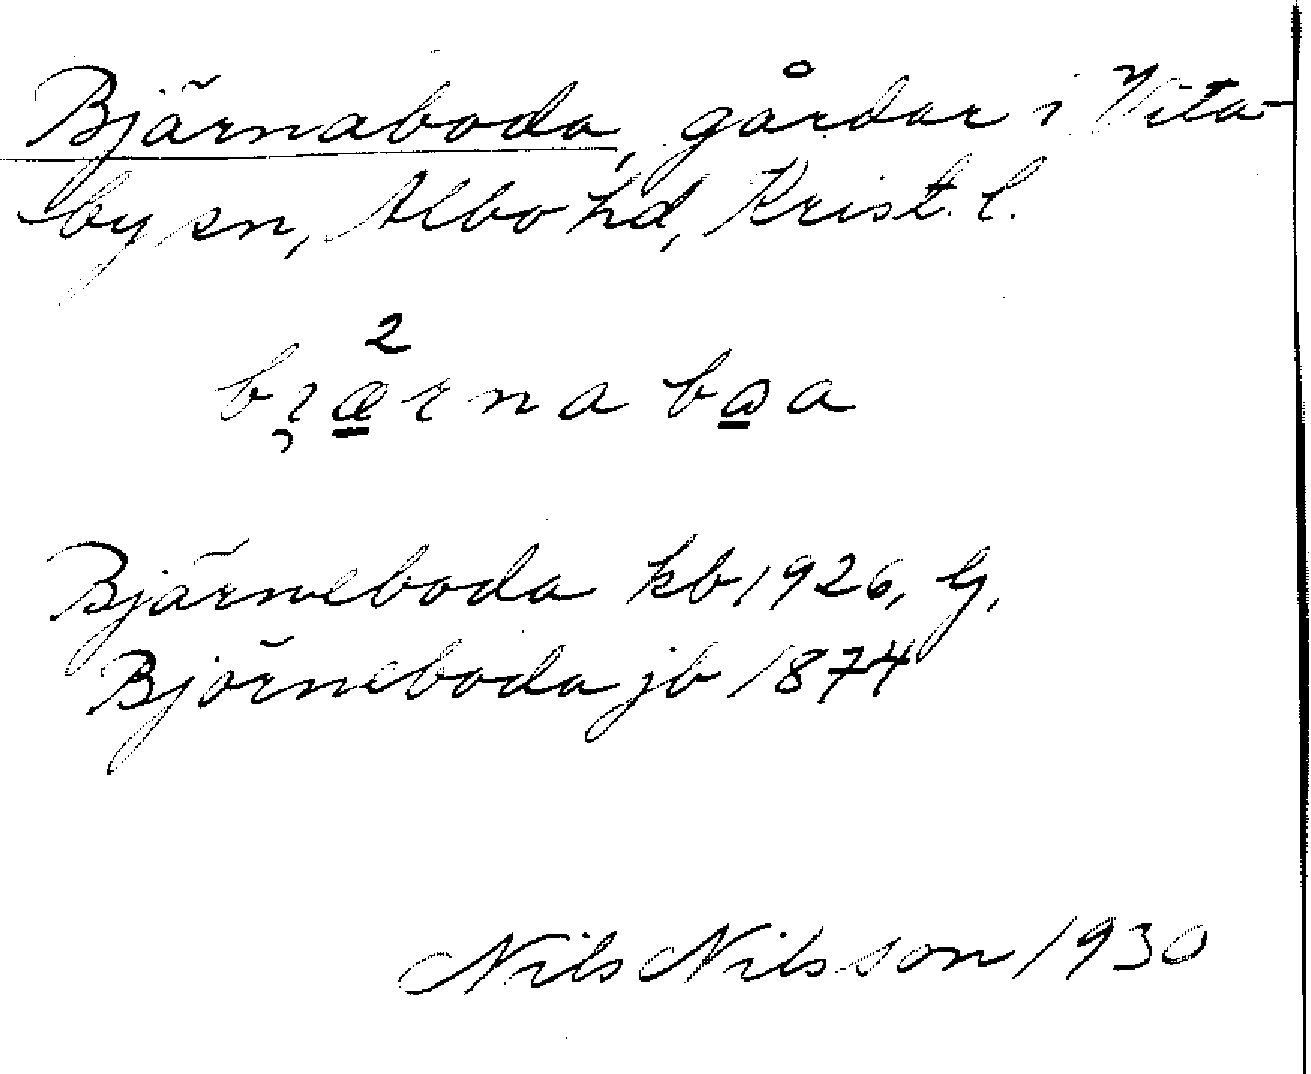 Bjärnaboda, gårdar i Vita-
by sn, Albo hd, Krist. l.
2
bɿærna båa
Bjärneboda kb 1926, G,
Björneboda jb 1874
Nils Nilsson 1930